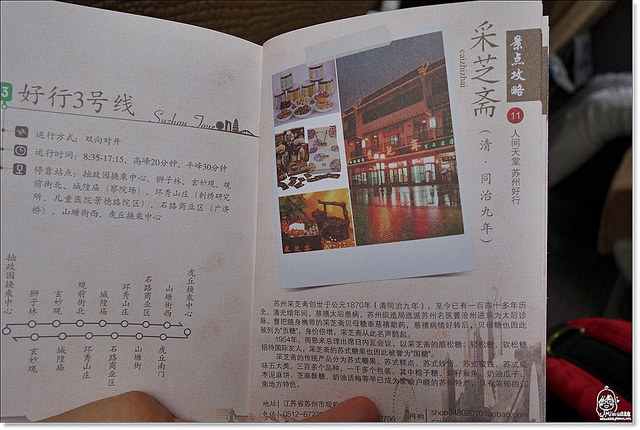 3
好行3号线
Suzhou Tour
运行方式：双向对开
运行时间：8:35-17:15，高峰20分钟，平峰30分钟
停靠站点：拙政园换乘中心、狮子林、玄妙观、观
前街北、城隍庙（察院场）、环秀山庄（刺绣研究
所、儿童医院景德路院区）、石路商业区（广济
桥）、山塘街西、虎丘换乘中心
拙政园换乘中心
狮子林
玄妙观
观前街北
城隍庙
环秀山庄
石路商业区
山塘街西
虎丘换乘中心
玄妙观
城隍庙
环秀山庄
石路商业区
山塘街
虎丘南门
景点攻略
11
人间天堂 苏州好行
采芝斋
caizhizhai
（清·同治九年）
苏州采芝斋创世于公元1870年（清同治九年），至今已有一百四十多年历
史。清光绪年间，慈禧太后患病，苏州织造局选派苏州名医曹沧州进京为太后诊
脉。曹把随身携带的采芝斋贝母糖奉慈禧助药，慈禧病情好转后，贝母糖也因此
被列为“贡糖”，身价倍增，采芝斋从此名声鹊起。
1954年，周恩来总理出席日内瓦会议，以采芝斋的脆松糖、轻松糖、软松糖
招待国际友人，采芝斋的苏式糖果也因此被誉为“国糖”。
采芝斋的传统产品分为苏式糖果、苏式糕点、苏式炒货、苏式蜜饯、苏式咸
味五大类，三百多个品种，一千多个包装。其中粽子糖、虾籽鲞鱼、奶油瓜子、
枣泥麻饼、芝麻酥糖、奶油话梅等早已成为家喻户晓的苏州特产，具有浓郁的江
南地方特色。
地址：江苏省苏州市观前
电话：0512-6727
shop34802010.taobao.com